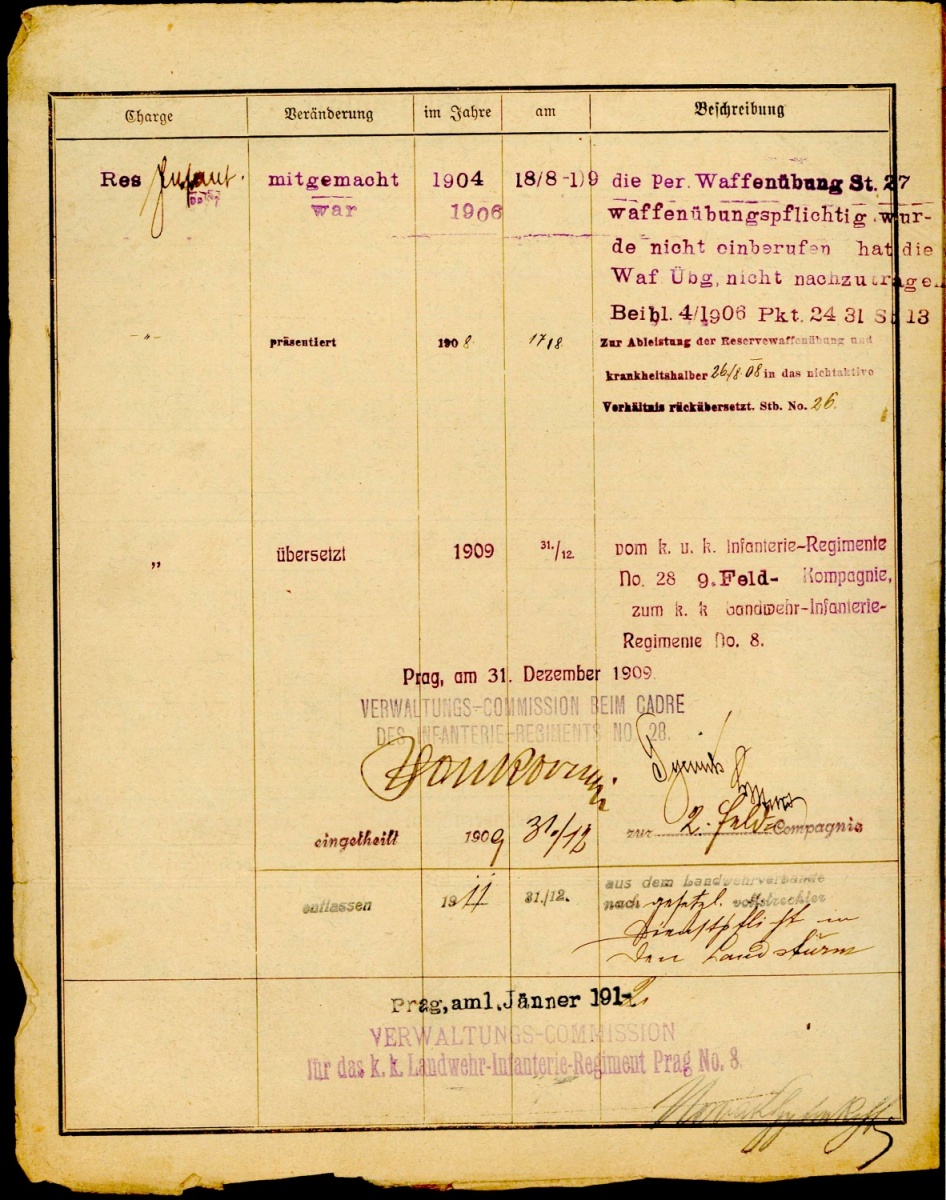 Charge Veränderung im Jahre am Beschreibung
Res Infant. mitgemacht 1904 18/8-1)9 die per. Waffenübung St. 27
war 1906 waffenübungspflichtig wur-
de nicht einberufen hat die
Waf Übg, nicht nachzutragen.
Beibl. 4/1906 Pkt. 24 31 St 13
-"- präsentiert 1908. 17/8. Zur Ableistung der Reservewaffenübung und
krankheitshalber 26/8.08 in das nichtaktive
Verhältnis rückübersetzt. Stb. No. 26.
" übersetzt 1909 31./12. vom k. u. k. Infanterie-Regimente
No. 28 9. Feld- Kompagnie,
zum k. k Landwehr-Infanterie-
Regimente No. 8.
Prag, am 31. Dezember 1909.
VERWALTUNGS-COMMISSION BEIM CADRE
DES INFANTERIE-REGIMENTS NO 28.
eingetheilt 1909 31./12 zur 2. Feld= Compagnie
entlassen 1911 31./12. aus dem Landwehrverbande
nach gesetzl. vollstreckter
Dienstpflicht in
den Landsturm
Prag, am 1. Jänner 1912.
VERWALTUNGS-COMMISSION
für das k. k. Landwehr-Infanterie-Regiment Prag No. 8.